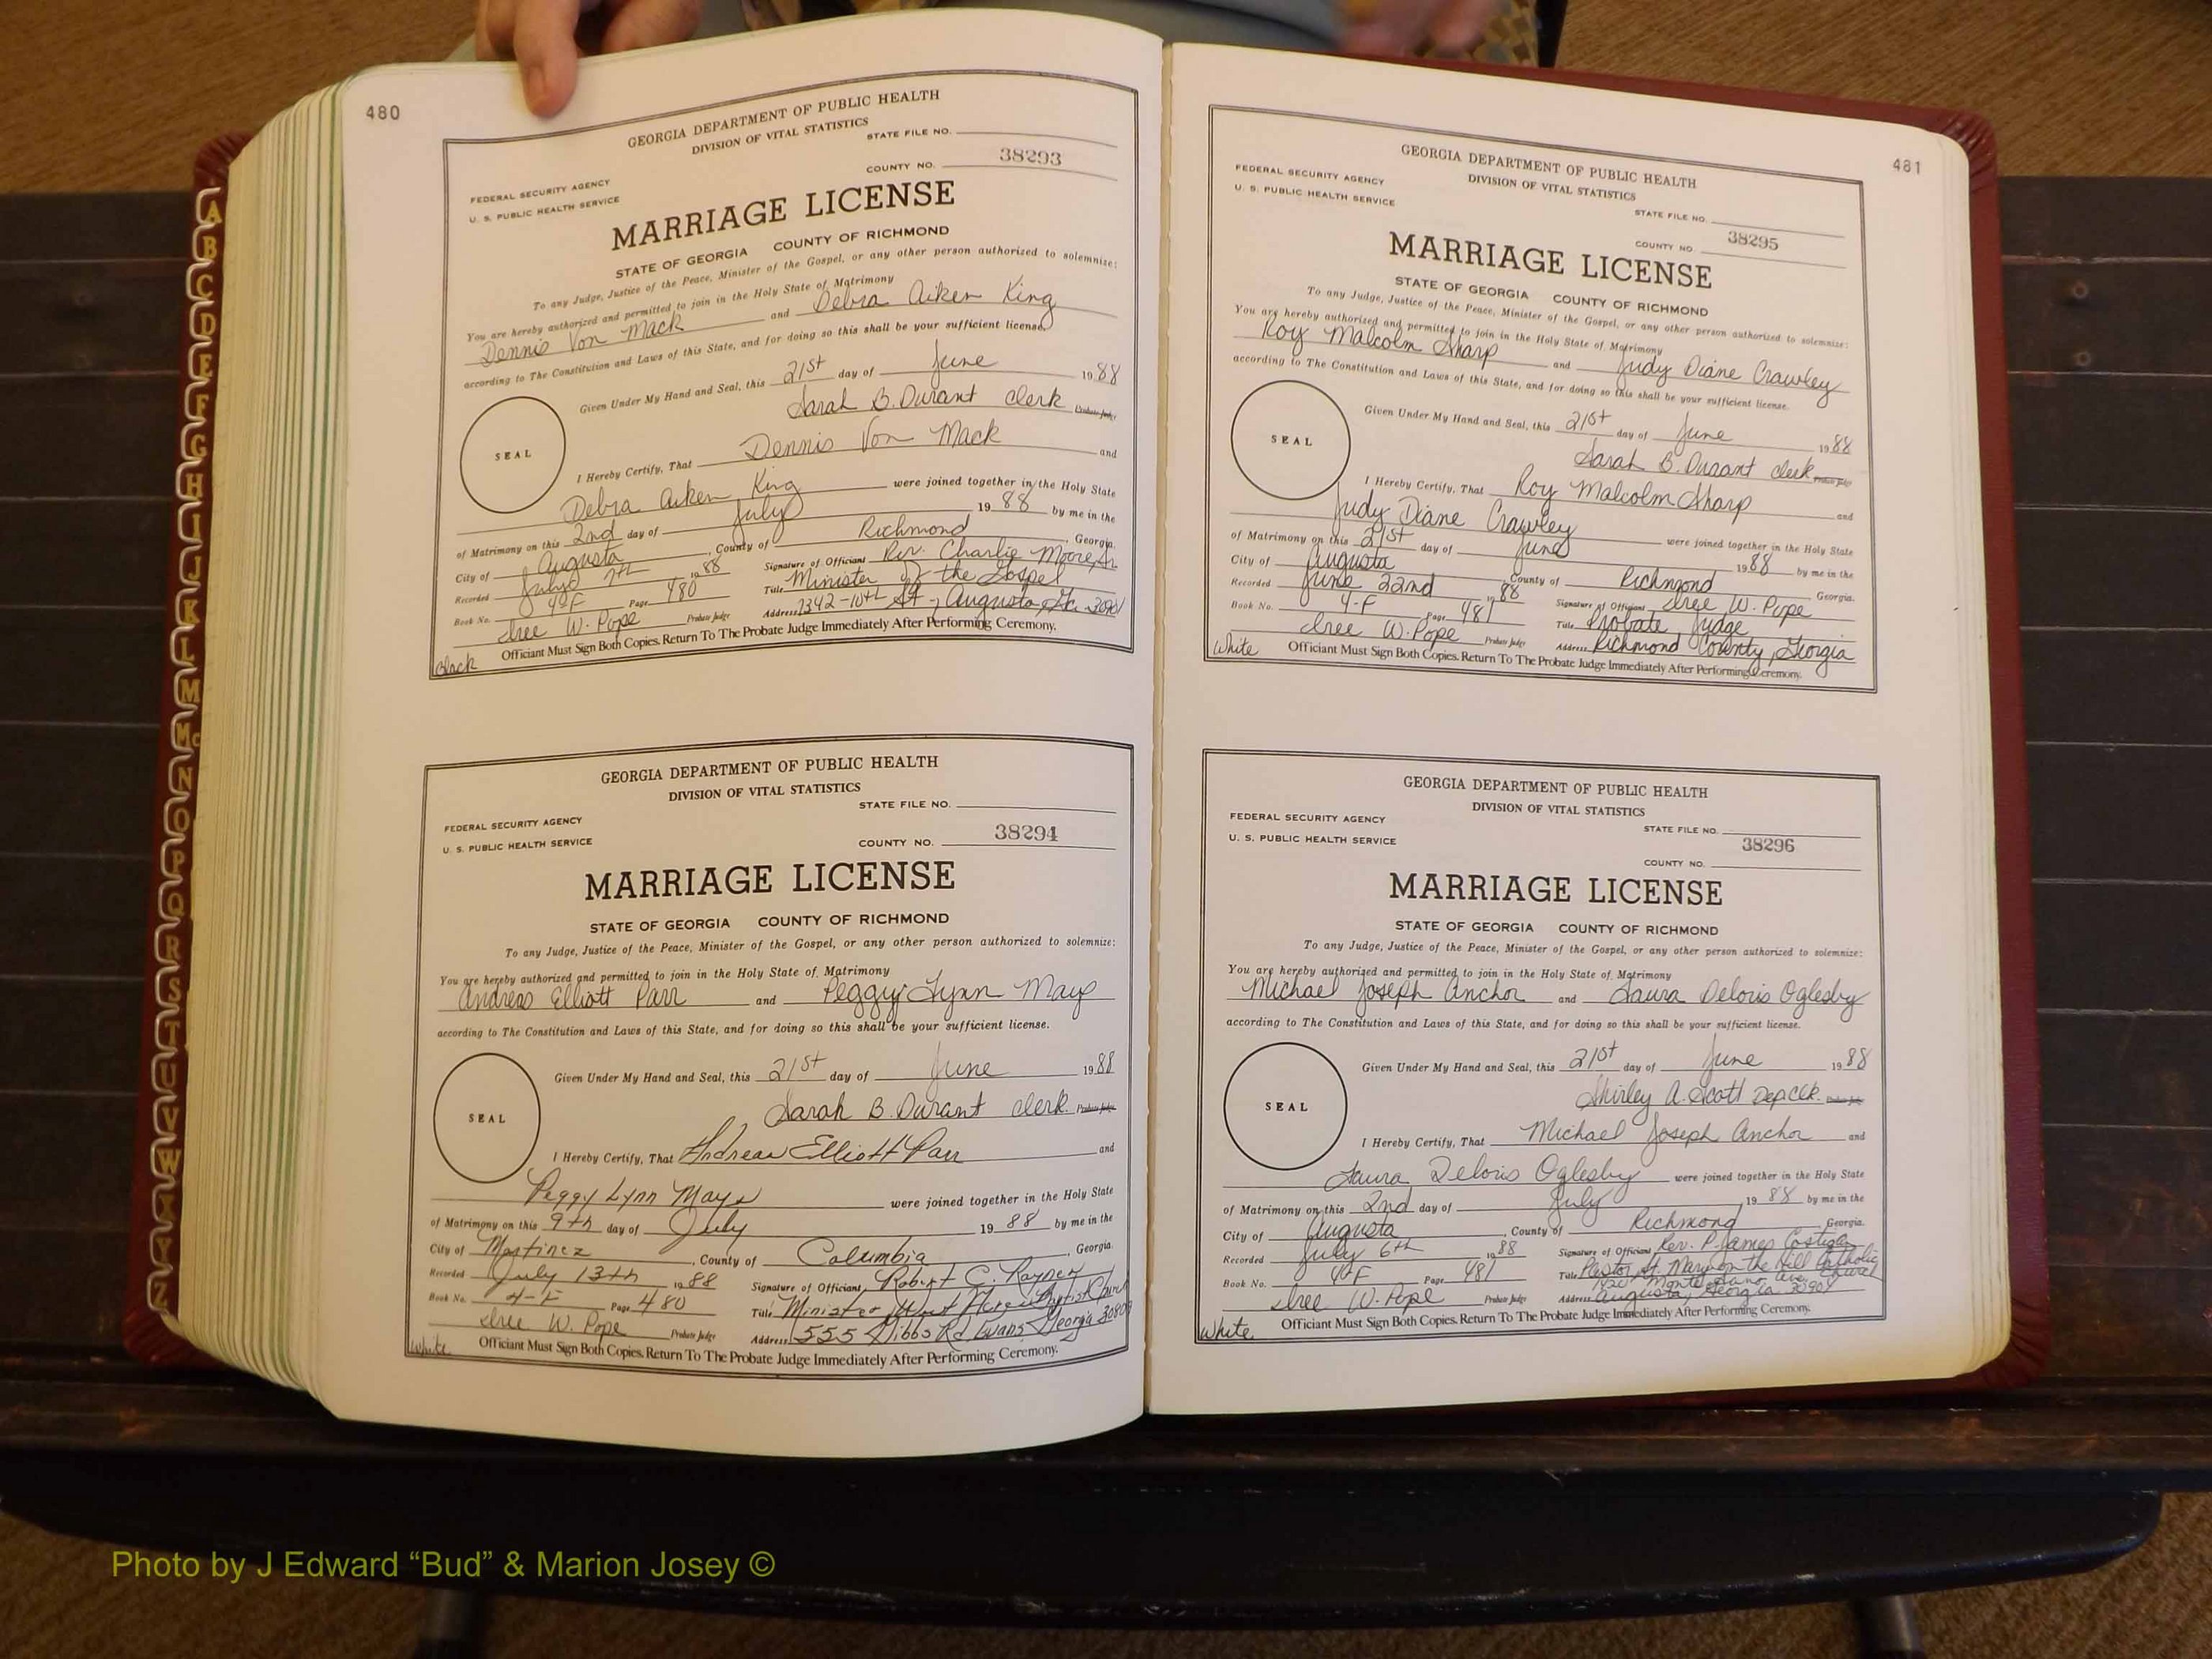 480
GEORGIA DEPARTMENT OF PUBLIC HEALTH
DIVISION OF VITAL STATISTICS
STATE FILE NO.
COUNTY NO. 38293
FEDERAL SECURITY AGENCY
U. S. PUBLIC HEALTH SERVICE
MARRIAGE LICENSE
STATE OF GEORGIA COUNTY OF RICHMOND
To any Judge, Justice of the Peace, Minister of the Gospel, or any other person authorized to solemnize:
You are hereby authorized and permitted to join in the Holy State of Matrimony
Dennis Von Mack and Debra Aiken King
according to The Constitution and Laws of this State, and for doing so this shall be your sufficient license.
Given Under My Hand and Seal, this 21st day of June 1988
Sarah B. Durant Clerk Probate Judge
SEAL
I Hereby Certify, That Dennis Von Mack and
Debra Aiken King were joined together in the Holy State
of Matrimony on this 2nd day of July 19 88 by me in the
City of Augusta, County of Richmond, Georgia.
Recorded July 7th 1988 Signature of Officiant Rev. Charlie Moore, Sr.
Book No. 4-F Page 480 Title Minister of the Gospel
Isree W. Pope Probate Judge Address 2342-10th St., Augusta, Ga. 30901
Officiant Must Sign Both Copies. Return To The Probate Judge Immediately After Performing Ceremony.
Black
GEORGIA DEPARTMENT OF PUBLIC HEALTH
DIVISION OF VITAL STATISTICS
STATE FILE NO.
FEDERAL SECURITY AGENCY
U. S. PUBLIC HEALTH SERVICE
COUNTY NO. 38294
MARRIAGE LICENSE
STATE OF GEORGIA COUNTY OF RICHMOND
To any Judge, Justice of the Peace, Minister of the Gospel, or any other person authorized to solemnize:
You are hereby authorized and permitted to join in the Holy State of Matrimony
Andreas Elliott Parr and Peggy Lynn Mays
according to The Constitution and Laws of this State, and for doing so this shall be your sufficient license.
Given Under My Hand and Seal, this 21st day of June 1988
Sarah B. Durant Clerk. Probate Judge
SEAL
I Hereby Certify, That Andreas Elliott Parr and
Peggy Lynn Mays were joined together in the Holy State
of Matrimony on this 9th day of July 19 88 by me in the
City of Martinez, County of Columbia, Georgia.
Recorded July 13th 1988 Signature of Officiant Robert C. Rayner
Book No. 4-F Page 480 Title Minister Baptist Church
Isree W. Pope Probate Judge Address 555 Gibbs Rd Evans Georgia 30809
Officiant Must Sign Both Copies. Return To The Probate Judge Immediately After Performing Ceremony.
White
481
GEORGIA DEPARTMENT OF PUBLIC HEALTH
DIVISION OF VITAL STATISTICS
FEDERAL SECURITY AGENCY
U. S. PUBLIC HEALTH SERVICE
STATE FILE NO.
COUNTY NO. 38295
MARRIAGE LICENSE
STATE OF GEORGIA COUNTY OF RICHMOND
To any Judge, Justice of the Peace, Minister of the Gospel, or any other person authorized to solemnize:
You are hereby authorized and permitted to join in the Holy State of Matrimony
Roy Malcolm Sharp and Judy Diane Crawley
according to The Constitution and Laws of this State, and for doing so this shall be your sufficient license.
Given Under My Hand and Seal, this 21st day of June 1988
Sarah B. Durant Clerk Probate Judge
SEAL
I Hereby Certify, That Roy Malcolm Sharp and
Judy Diane Crawley were joined together in the Holy State
of Matrimony on this 21st day of June 1988 by me in the
City of Augusta, County of Richmond Georgia.
Recorded June 22nd 1988 Signature of Officiant Isree W. Pope
Book No. 4-F Page 481 Title Probate Judge
Isree W. Pope Probate Judge Address Richmond County, Georgia
Officiant Must Sign Both Copies. Return To The Probate Judge Immediately After Performing Ceremony.
White
GEORGIA DEPARTMENT OF PUBLIC HEALTH
DIVISION OF VITAL STATISTICS
FEDERAL SECURITY AGENCY
U. S. PUBLIC HEALTH SERVICE
STATE FILE NO.
38296
COUNTY NO.
MARRIAGE LICENSE
STATE OF GEORGIA COUNTY OF RICHMOND
To any Judge, Justice of the Peace, Minister of the Gospel, or any other person authorized to solemnize:
You are hereby authorized and permitted to join in the Holy State of Matrimony
Michael Joseph Anchor and Laura Deloris Oglesby
according to The Constitution and Laws of this State, and for doing so this shall be your sufficient license.
Given Under My Hand and Seal, this 21st day of June 1988
Shirley A. Scott Dep Clk. Probate Judge
SEAL
I Hereby Certify, That Michael Joseph Anchor and
Laura Deloris Oglesby were joined together in the Holy State
of Matrimony on this 2nd day of July, 19 88 by me in the
City of Augusta, County of Richmond, Georgia.
Recorded July 6th 1988 Signature of Officiant Rev. P. James Costigan
Book No. 4-F Page 481 Title Pastor St. Mary on the Hill Catholic Church
1420 Monte Sano Ave.
Isree W. Pope Probate Judge Address Augusta, Georgia 30904
Officiant Must Sign Both Copies. Return To The Probate Judge Immediately After Performing Ceremony.
White
A
B
C
D
E
F
G
H
I
J
K
L
M
Mc
N
O
P
Q
R
S
T
U
V
W
X
Y
Z
Photo by J Edward “Bud” & Marion Josey ©